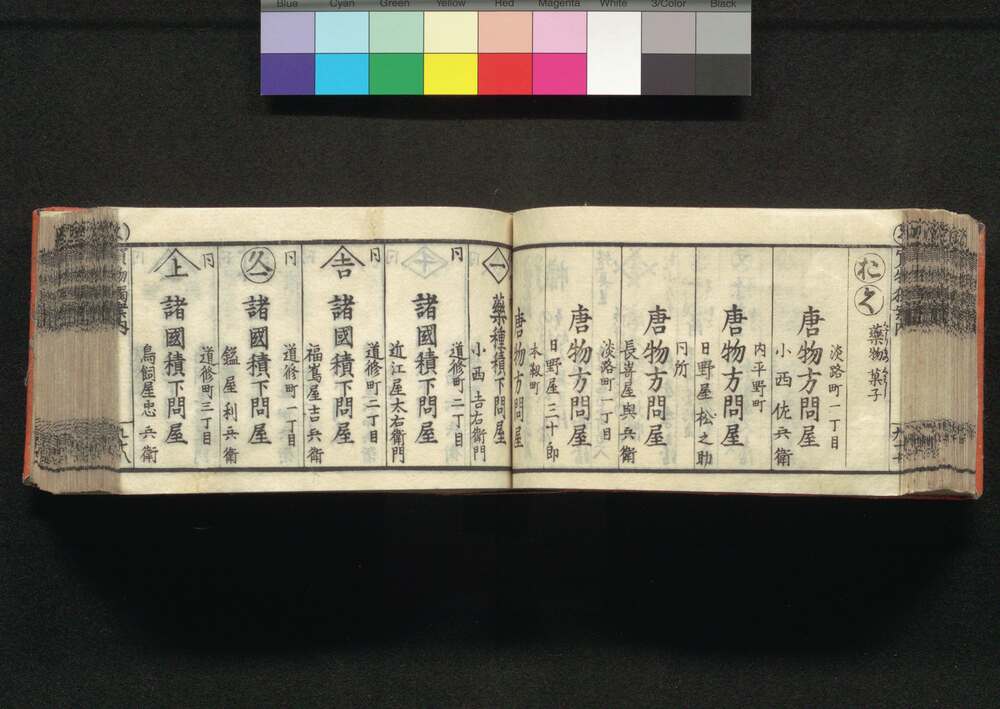 Blue Cyan Green Yellow Red Magenta White 3/Color Black
藥物 菓子
淡路町一丁目
唐物方問屋
小西佐兵衛
内平野町
唐物方問屋
日野屋松之助
同所
唐物方問屋
長嵜屋與兵衛
淡路町一丁目
唐物方問屋
日野屋三十郎
本靱町
唐物方問屋
一
藥種積下問屋
小西吉右衛門
道修町二丁目
諸國積下問屋
近江屋太右衛門
同
道修町二丁目
吉
諸國積下問屋
福嶌屋吉兵衛
同
道修町一丁目
久一
諸國積下問屋
鎰屋利兵衛
同
道修町三丁目
上
諸國積下問屋
鳥飼屋忠兵衛